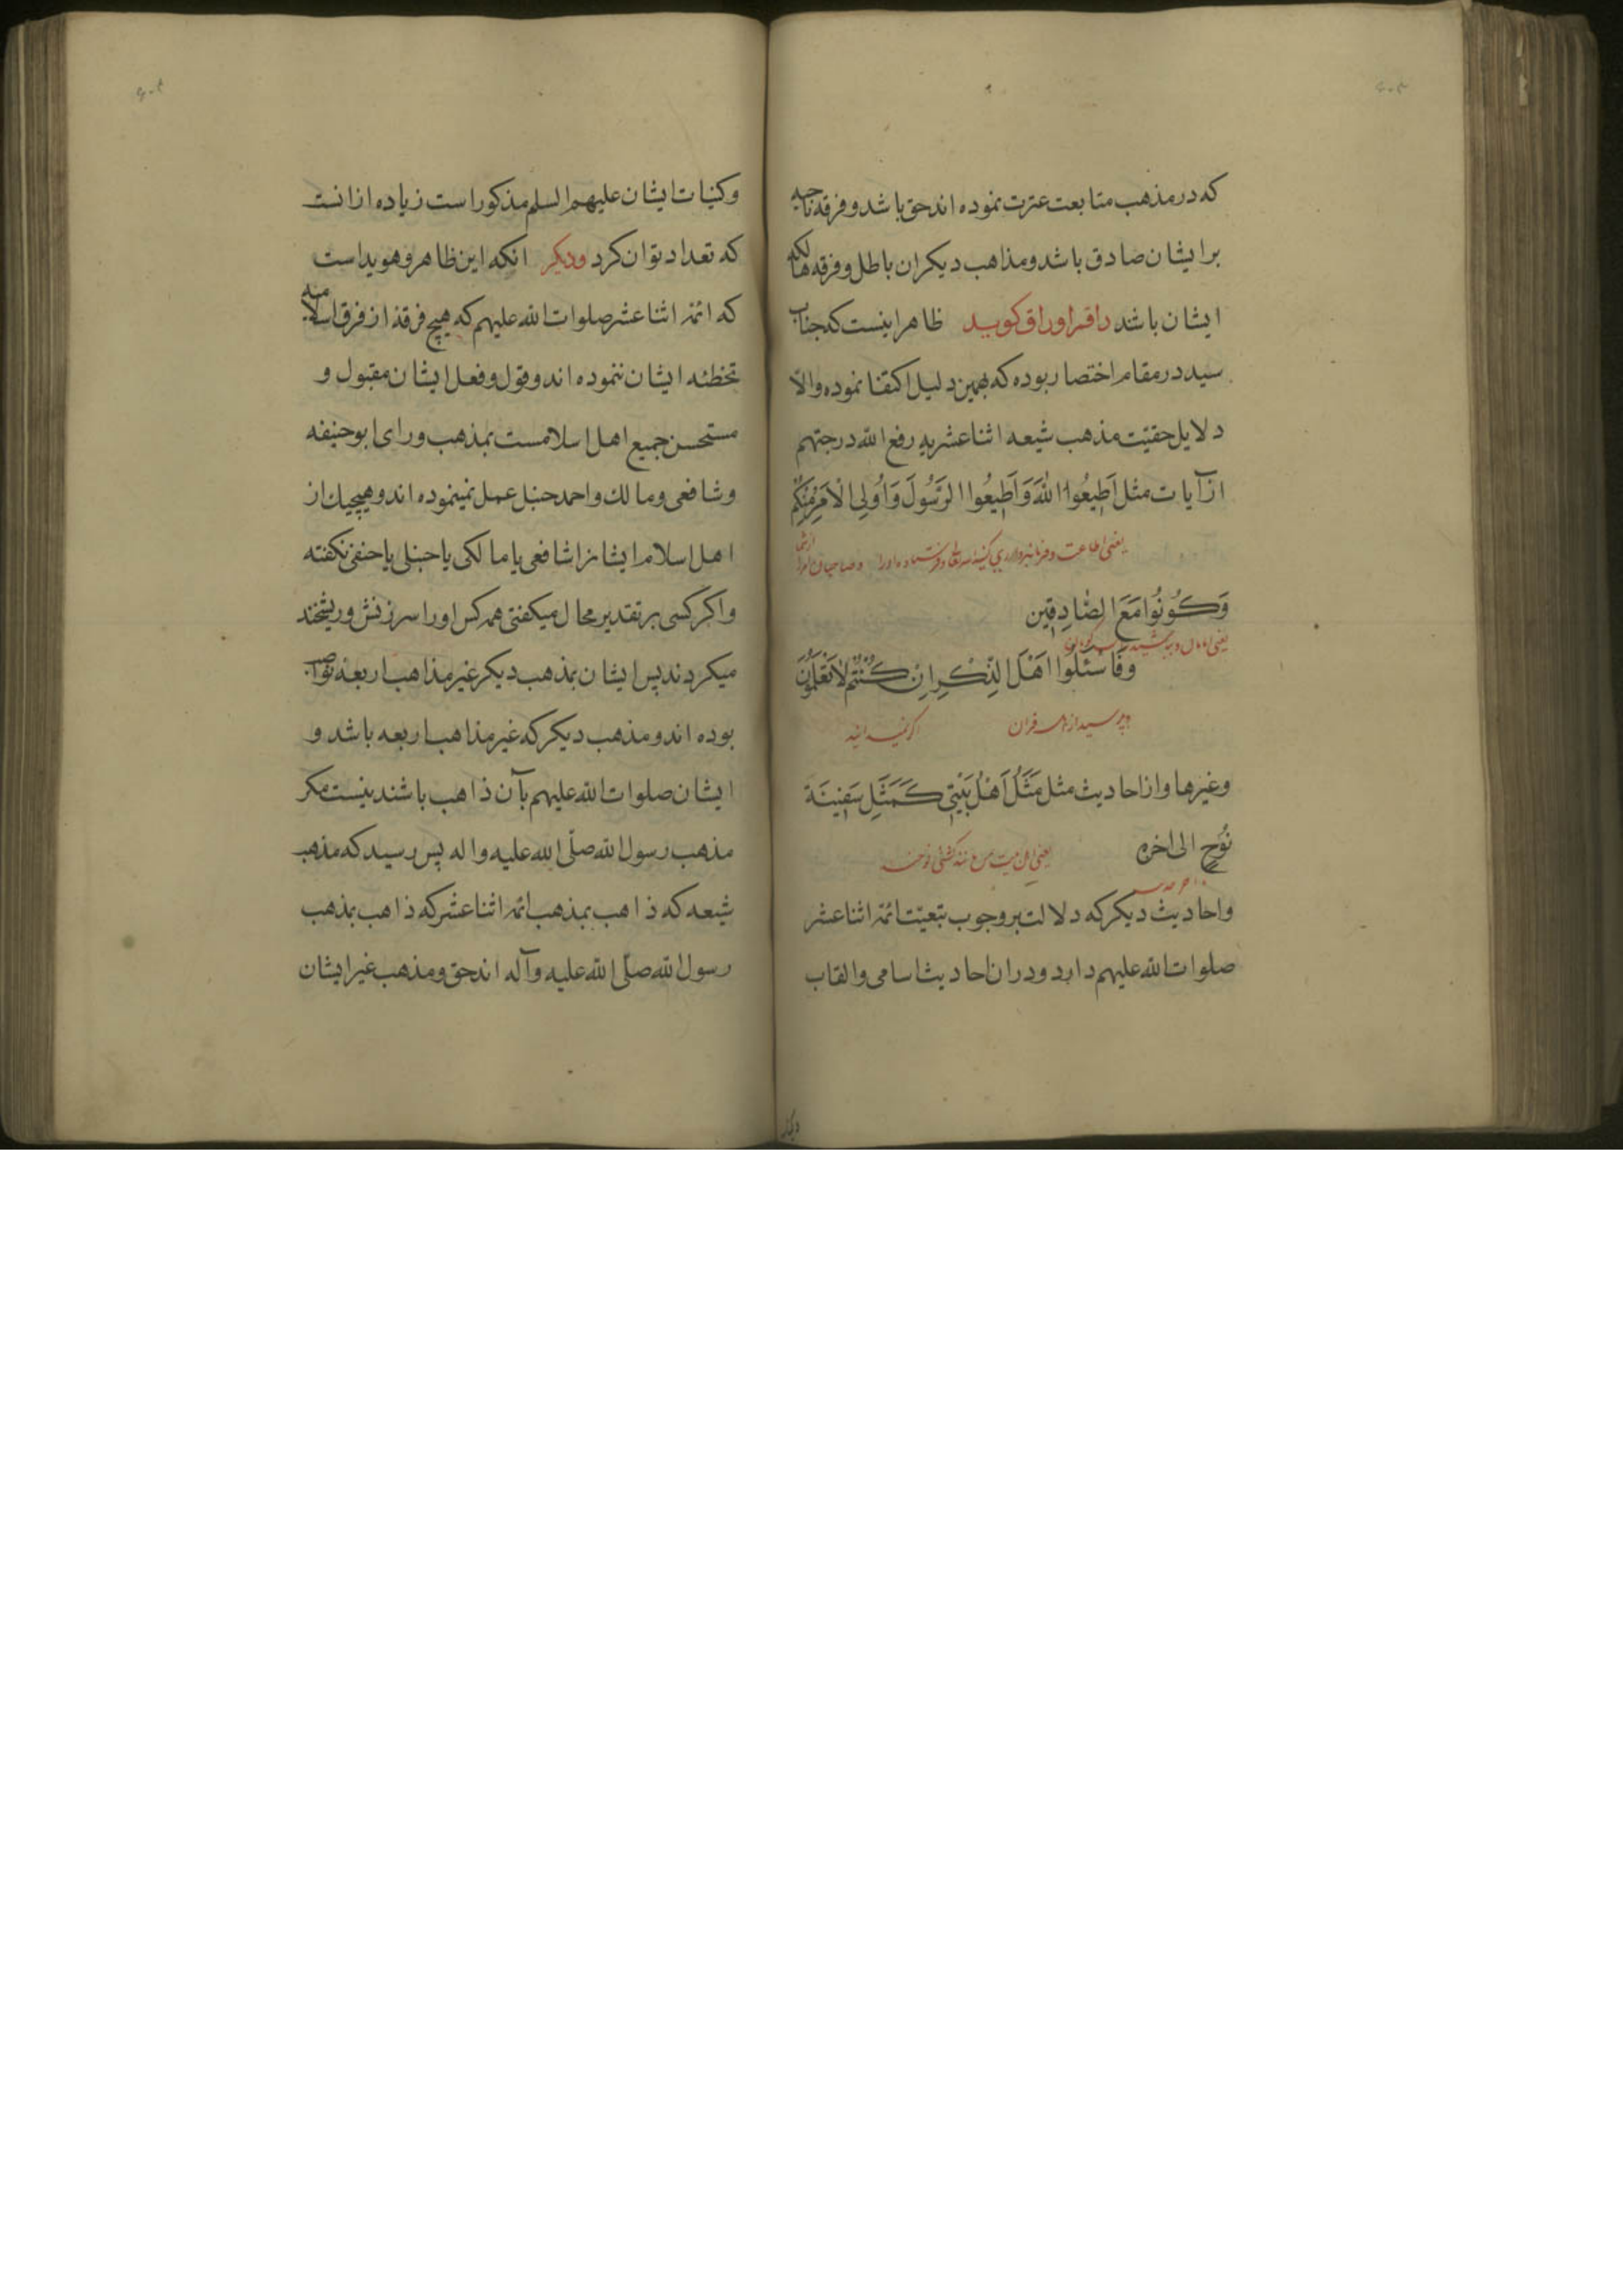 که در مذهب متابعت عترت نموده اند حق باشد و فرقه ناجیه
بر ایشان صادق باشد و مذاهب دیکران باطل و فرقه هالکه
ایشان باشد راقم اوراق کوید ظاهر اینست که جناب
سید در مقام اختصار بوده که بهمین دلیل اکتفا نموده والّا
دلایل حقیّت مذهب شیعه اثنا عشریه رفع الله درجتهم
از آیات مثل اَطِیعُوا اللهَ وَاَطِیعُوا الرَّسُولَ وَاُولِی الْاَمْرِ مِنْکُمْ
یعنی اطاعت و فرمانبرداری کنید
وَکُونُوا مَعَ الصَّادِقِین
وفَاسْئَلُوا اَهْلَ الذِّکْرِ اِنْ کُنْتُمْ لاَتَعْلَمُونَ
وغیرها واز احادیث مثل مَثَلُ اَهْلُ بَیْتِی کَمَثَلِ سَفِینَة
نُوحٍ الی اخره
واحادیث دیکر که دلالت بر وجوب تبعیّت ائمّه اثنا عشر
صلوات الله علیهم دارد ودران احادیث اسامی والقاب
وکنیات ایشان علیهم السلم مذکور است زیاده از انست
که تعداد توان کرد ودیکر انکه این ظاهر وهویداست
که ائمّه اثنا عشر صلوات الله علیهم که هیچ فرقهٔ از فرق اسلامیه
تخطئه ایشان ننموده اند وقول وفعل ایشان مقبول و
مستحسن جمیع اهل اسلامست بمذهب ورای ابوحنیفه
وشافعی ومالك واحمد حنبل عمل نمینموده اند وهیچیك از
اهل اسلام ایشانرا شافعی یا مالکی یا حنبلی یا حنفی نکفته
واکر کسی بر تقدیر محال میکفتی همه کس اورا سرزنش وریشخند
میکردند پس ایشان بمذهب دیکر غیر مذاهب اربعه نواصب
بوده اند ومذهب دیکر که غیر مذاهب اربعه باشد و
ایشان صلوات الله علیهم بآن ذاهب باشند نیست مکر
مذهب رسول الله صلّی الله علیه واله پس رسید که مذهب
شیعه که ذاهب بمذهب ائمّه اثنا عشر که ذاهب بمذهب
رسول الله صلّی الله علیه وآله اند حق ومذهب غیر ایشان